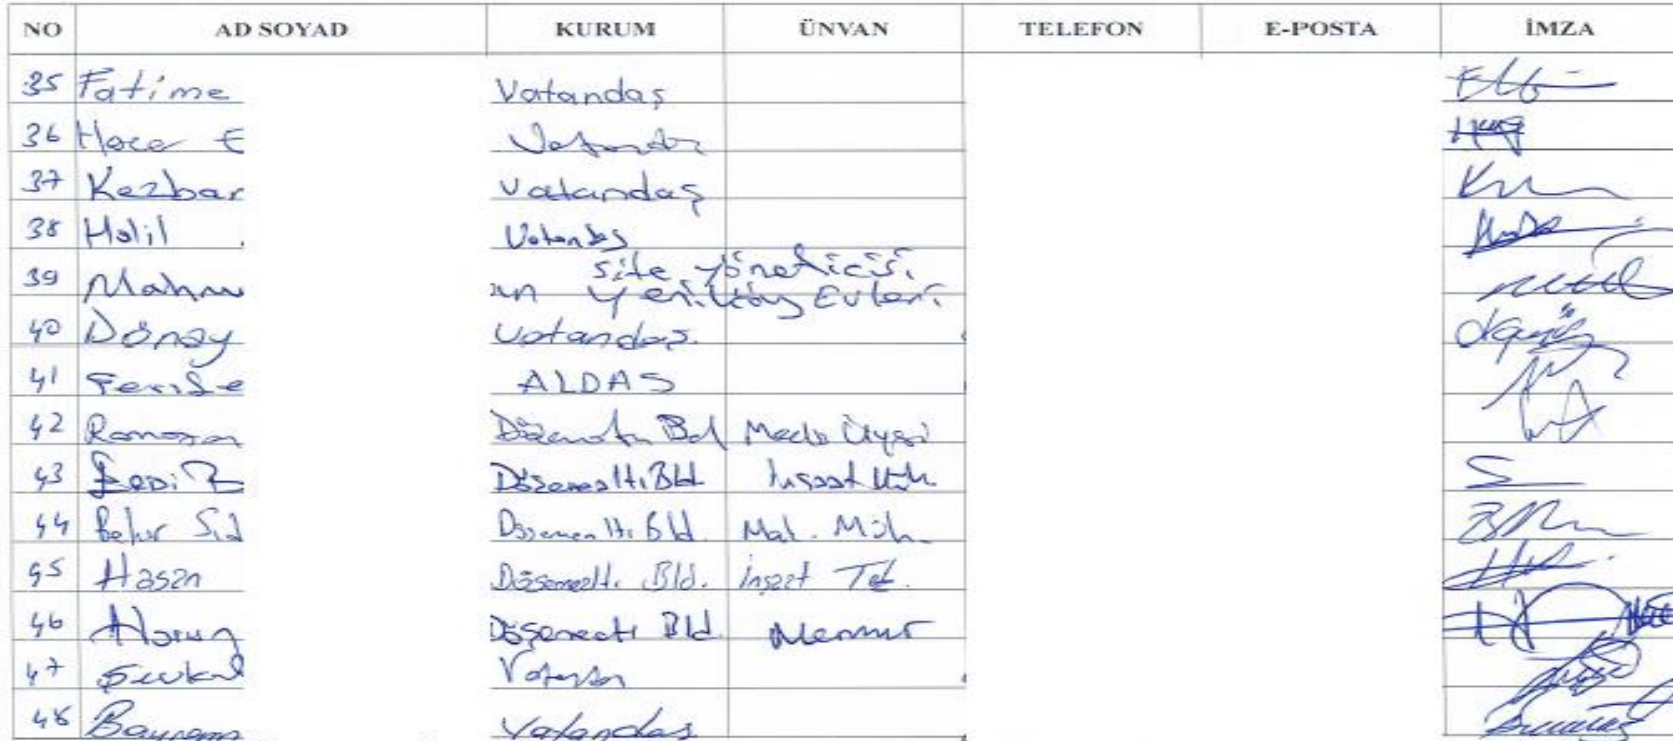 NO AD SOYAD KURUM ÜNVAN TELEFON E-POSTA İMZA
35 Fatime Vatandaş
36 Hacer E Vatandaş
37 Kezbar Vatandaş
38 Halil Vatandaş
site yöneticisi
39 Mahmu an Yeniköy Evleri
40 Dönay Vatandaş
41 Şerife ALDAŞ
42 Ramazan Döşemealtı Bld Mecls Üyesi
43 Döşemealtı Bld İnşaat Müh
44 Bekir Sıd Döşemealtı Bld. Mak. Müh.
45 Hasan Döşemealtı Bld. İnşaat Tek.
46 Harun Döşemealtı Bld. Memur
47 Şevket Vatandaş
48 Bayram Vatandaş